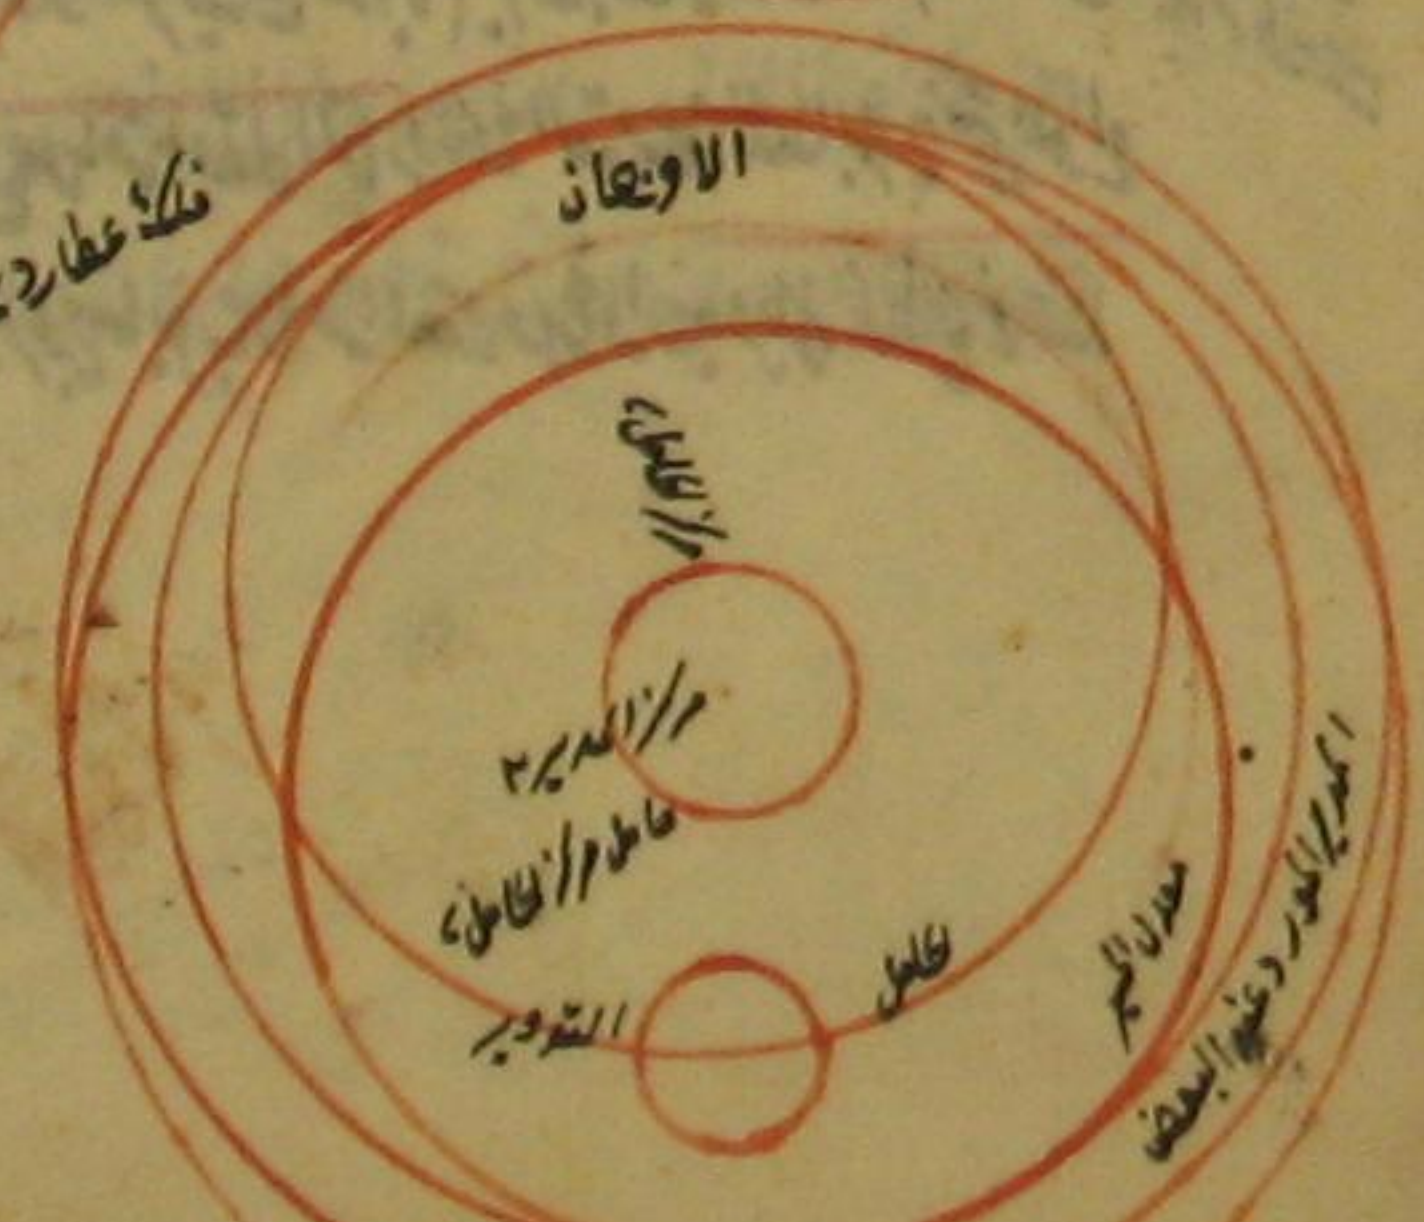 فلك عطارد
الاوجان
مركز الحامل
مركز المدير
حامل مركز الحامل
التدوير
الحامل
معدل المسير
المدير المحور د عند البعض